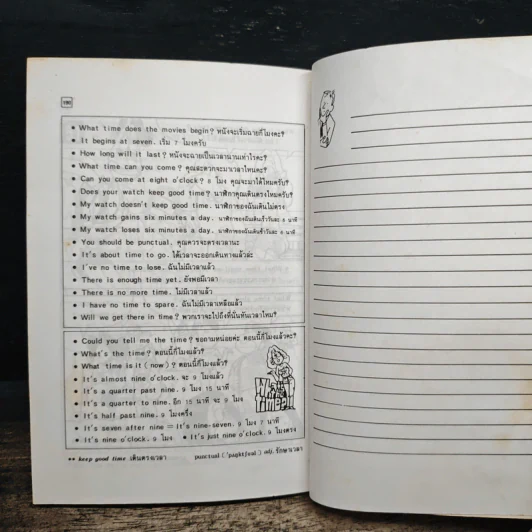 • What time does the movies begin? หนังจะเริ่มฉายกี่โมงคะ?
• It begins at seven. เริ่ม 7 โมงครับ
• How long will it last? หนังจะฉายเป็นเวลานานเท่าไรคะ?
• What time can you come? คุณสะดวกจะมาเวลาไหนคะ?
• Can you come at eight o'clock? 8 โมง คุณจะมาได้ไหมครับ?
• Does your watch keep good time? นาฬิกาคุณเดินตรงไหมครับ?
• My watch doesn't keep good time. นาฬิกาของฉันเดินไม่ตรง
• My watch gains six minutes a day. นาฬิกาของฉันเดินเร็ววันละ 6 นาที
• My watch loses six minutes a day. นาฬิกาของฉันเดินช้าวันละ 6 นาที
• You should be punctual. คุณควรจะตรงเวลานะ
• It's about time to go. ได้เวลาจะออกเดินทางแล้วล่ะ
• I've no time to lose. ฉันไม่มีเวลาแล้ว
• There is enough time yet. ยังพอมีเวลา
• There is no more time. ไม่มีเวลาแล้ว
• I have no time to spare. ฉันไม่มีเวลาเหลือแล้ว
• Will we get there in time? พวกเราจะไปถึงที่นั่นทันเวลาไหม?
• Could you tell me the time? ขอถามหน่อยค่ะ ตอนนี้กี่โมงแล้วคะ?
• What's the time? ตอนนี้กี่โมงแล้ว?
• What time is it (now)? ตอนนี้กี่โมงแล้ว?
• It's almost nine o'clock. จะ 9 โมงแล้ว
• It's a quarter past nine. 9 โมง 15 นาที
• It's a quarter to nine. อีก 15 นาที จะ 9 โมง
• It's half past nine. 9 โมงครึ่ง
• It's seven after nine = It's nine-seven. 9 โมง 7 นาที
• It's nine o'clock. 9 โมง • It's just nine o'clock. 9 โมงตรง
What time?
** keep good time เดินตรงเวลา punctual ('pʌŋktʃuəl) adj. รักษาเวลา